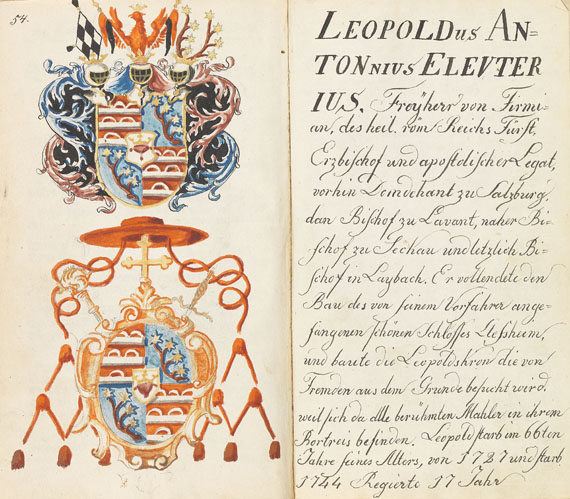 54.
LEOPOLDus AN=
TONnius ELEVTER
IUS. Freÿherr von Firmi=
an, des heil. röm Reichs Fürst,
Erzbischof und apostolischer Legat,
vorhin Domdehant zu Salzburg,
dan Bischof zu Lavant, naher Bi=
schof zu Sechau und letzlich Bi=
schof in Laybach. Er vollendete den
Bau des von seinem Vorfahrer ange=
fangenen schönen Schlosses
und baute die Leopoldskron die von
Fremden aus dem Grunde besucht wird,
weil sich da alle berühmten Mahler in ihrem
befinden. Leopold starb im 66ten
Jahre seines Alters, von 1727 und starb
1744 Regierte 17 Jahr